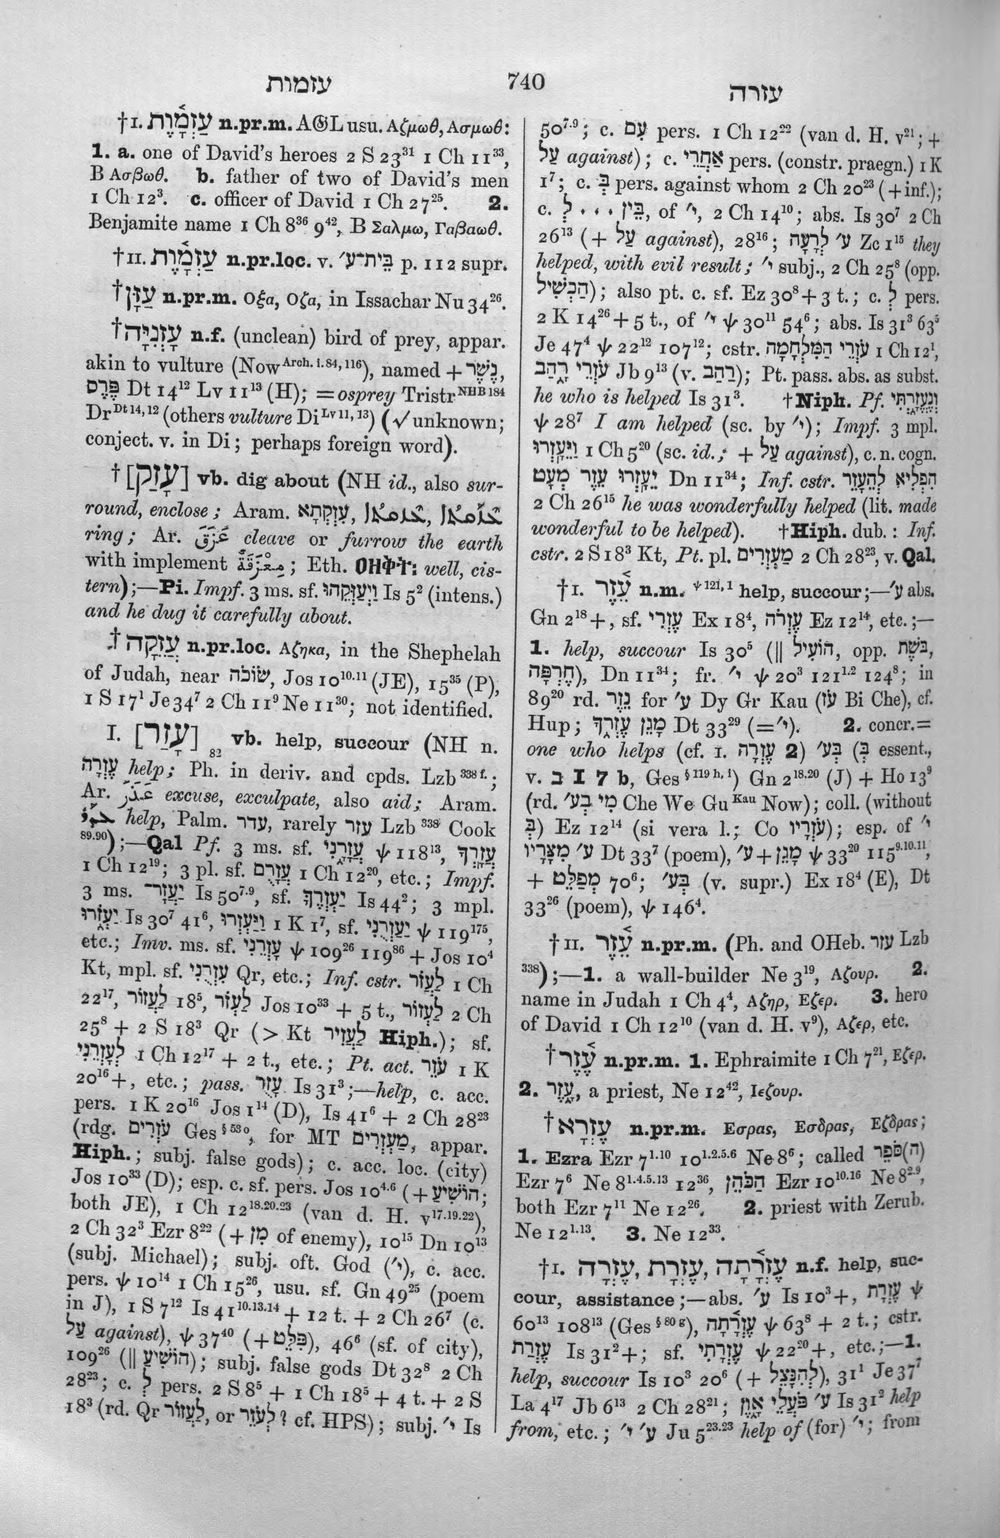 עזמות
740
עזרה
†I. עַזְמָ֫וֶת n.pr.m. A𝔊L usu. Αζμωθ, Ασμωθ:
1. a. one of David's heroes 2 S 23³¹ 1 Ch 11³³,
B Ασβωθ. b. father of two of David's men
1 Ch 12³. c. officer of David 1 Ch 27²⁵. 2.
Benjamite name 1 Ch 8³⁶ 9⁴², B Σαλμω, Γαβαωθ.
†II. עַזְמָ֫וֶת n.pr.loc. v. בֵּית־ע׳ p. 112 supr.
†עַזָּן n.pr.m. Οξα, Οζα, in Issachar Nu 34²⁶.
†עָזְנִיָּה n.f. (unclean) bird of prey, appar.
akin to vulture (Now Arch. i. 84, 116), named + נֶ֫שֶׁר,
פֶּרֶס Dt 14¹² Lv 11¹³ (H); = osprey Tristr NHB 184
Dr Dt 14, 12 (others vulture Di Lv 11, 13) (√ unknown;
conject. v. in Di; perhaps foreign word).
†[עָזַק] vb. dig about (NH id., also sur-
round, enclose; Aram. עִזְקְתָא,
ring; Ar. عَزَقَ cleave or furrow the earth
with implement مِعْزَقَةٌ; Eth. well, cis-
tern);—Pi. Impf. 3 ms. sf. וַיְעַזְּקֵהוּ Is 5² (intens.)
and he dug it carefully about.
†עֲזֵקָה n.pr.loc. Αζηκα, in the Shephelah
of Judah, near שׂוֹכֹה, Jos 10¹⁰·¹¹ (JE), 15³⁵ (P),
1 S 17¹ Je 34⁷ 2 Ch 11⁹ Ne 11³⁰; not identified.
I. [עָזַר]₈₂ vb. help, succour (NH n.
עֶזְרָה help; Ph. in deriv. and cpds. Lzb 338 f.;
Ar. عَذَرَ excuse, exculpate, also aid; Aram.
help, Palm. עדר, rarely עזר Lzb 338 Cook
89.90);—Qal Pf. 3 ms. sf. עֲזָרָ֑נִי ψ 118¹³, עֲזָרֶ֑ךָ
1 Ch 12¹⁹; 3 pl. sf. עֲזָרֻם 1 Ch 12²⁰, etc.; Impf.
3 ms. יַעֲזָר־ Is 50⁷·⁹, sf. יַעְזְרֶךָּ Is 44²; 3 mpl.
יַעְזֹ֑רוּ Is 30⁷ 41⁶, וַיַּעְזְרוּ 1 K 1⁷, sf. יַעְזְרֻנִי ψ 119¹⁷⁵,
etc.; Imv. ms. sf. עָזְרֵנִי ψ 109²⁶ 119⁸⁶ + Jos 10⁴
Kt, mpl. sf. עִזְרֻנִי Qr, etc.; Inf. cstr. לַעְזֹר 1 Ch
22¹⁷, לַעְזוֹר 18⁵, לַעְזֹר Jos 10³³ + 5 t., לַעְזוֹר 2 Ch
25⁸ + 2 S 18³ Qr (> Kt לַעְזִיר Hiph.); sf.
לְעָזְרֵנִי 1 Ch 12¹⁷ + 2 t., etc.; Pt. act. עֹזֵר 1 K
20¹⁶ +, etc.; pass. עָזֻר Is 31³;—help, c. acc.
pers. 1 K 20¹⁶ Jos 1¹⁴ (D), Is 41⁶ + 2 Ch 28²³
(rdg. עֹזְרִים Ges § 53 o, for MT מַעְזְרִים, appar.
Hiph.; subj. false gods); c. acc. loc. (city)
Jos 10³³ (D); esp. c. sf. pers. Jos 10⁴·⁶ (+ הוֹשִׁיעַ;
both JE), 1 Ch 12¹⁸·²⁰·²³ (van d. H. v¹⁷·¹⁹·²²),
2 Ch 32³ Ezr 8²² (+ מִן of enemy), 10¹⁵ Dn 10¹³
(subj. Michael); subj. oft. God (י׳), c. acc.
pers. ψ 10¹⁴ 1 Ch 15²⁶, usu. sf. Gn 49²⁵ (poem
in J), 1 S 7¹² Is 41¹⁰·¹³·¹⁴ + 12 t. + 2 Ch 26⁷ (c.
עַל against), ψ 37⁴⁰ (+ פִּלֵּט), 46⁶ (sf. of city),
109²⁶ (|| הוֹשִׁיעַ); subj. false gods Dt 32⁸ 2 Ch
28²³; c. לְ pers. 2 S 8⁵ + 1 Ch 18⁵ + 4 t. + 2 S
18³ (rd. Qr לַעְזוֹר, or לַעְזֹר? cf. HPS); subj. י׳ Is
50⁷·⁹; c. עִם pers. 1 Ch 12²² (van d. H. v²¹; +
עַל against); c. אַחֲרֵי pers. (constr. praegn.) 1 K
1⁷; c. בְּ pers. against whom 2 Ch 20²³ (+ inf.);
c. בֵּין . . . לְ, of י׳, 2 Ch 14¹⁰; abs. Is 30⁷ 2 Ch
26¹³ (+ עַל against), 28¹⁶; לְרָעָה ע׳ Zc 1¹⁵ they
helped, with evil result; י׳ subj., 2 Ch 25⁸ (opp.
הִכְשִׁיל); also pt. c. sf. Ez 30⁸ + 3 t.; c. לְ pers.
2 K 14²⁶ + 5 t., of י׳ ψ 30¹¹ 54⁶; abs. Is 31³ 63⁵
Je 47⁴ ψ 22¹² 107¹²; cstr. עֹזְרֵי הַמִּלְחָמָה 1 Ch 12¹,
עֹזְרֵי רָ֑הַב Jb 9¹³ (v. רהב); Pt. pass. abs. as subst.
he who is helped Is 31³. †Niph. Pf. וְנֶעֱזָ֑רְתִּי
ψ 28⁷ I am helped (sc. by י׳); Impf. 3 mpl.
וַיֵּעָזְרוּ 1 Ch 5²⁰ (sc. id.; + עַל against), c. n. cogn.
יֵעָזְרוּ עֵזֶר מְעָט Dn 11³⁴; Inf. cstr. הִפְלִיא לְהֵעָזֵר
2 Ch 26¹⁵ he was wonderfully helped (lit. made
wonderful to be helped). †Hiph. dub.: Inf.
cstr. 2 S 18³ Kt, Pt. pl. מַעְזְרִים 2 Ch 28²³, v. Qal.
†I. עֵ֫זֶר n.m. ψ 121, 1 help, succour;—ע׳ abs.
Gn 2¹⁸ +, sf. עֶזְרִי Ex 18⁴, עֶזְרֹה Ez 12¹⁴, etc.;—
1. help, succour Is 30⁵ (|| הוֹעִיל, opp. בֹּשֶׁת,
חֶרְפָּה), Dn 11³⁴; fr. י׳ ψ 20³ 121¹·² 124⁸; in
89²⁰ rd. נֵזֶר for ע׳ Dy Gr Kau (עֹז Bi Che), cf.
Hup; מָגֵן עֶזְרֶ֑ךָ Dt 33²⁹ (= י׳). 2. concr. =
one who helps (cf. I. עֶזְרָה 2) בְּע׳ (בְּ essent.,
v. בְּ I 7 b, Ges § 119 h, i) Gn 2¹⁸·²⁰ (J) + Ho 13⁹
(rd. מִי בְע׳ Che We Gu Kau Now); coll. (without
בְּ) Ez 12¹⁴ (si vera l.; Co עֹזְרָיו); esp. of י׳
ע׳ מִצָּרָיו Dt 33⁷ (poem), ע׳ + מָגֵן ψ 33²⁰ 115⁹·¹⁰·¹¹,
+ מְפַלֵּט 70⁶; בְּע׳ (v. supr.) Ex 18⁴ (E), Dt
33²⁶ (poem), ψ 146⁴.
†II. עֵ֫זֶר n.pr.m. (Ph. and OHeb. עזר Lzb
338);—1. a wall-builder Ne 3¹⁹, Αζουρ. 2.
name in Judah 1 Ch 4⁴, Αζηρ, Εζερ. 3. hero
of David 1 Ch 12¹⁰ (van d. H. v⁹), Αζερ, etc.
†עֶזֶר n.pr.m. 1. Ephraimite 1 Ch 7²¹, Εζερ.
2. עֵזֶר, a priest, Ne 12⁴², Ιεζουρ.
†עֶזְרָא n.pr.m. Εσρας, Εσδρας, Εζδρας;
1. Ezra Ezr 7¹·¹⁰ 10¹·²·⁵·⁶ Ne 8⁶; called (הַ)סֹּפֵר
Ezr 7⁶ Ne 8¹·⁴·⁵·¹³ 12³⁶, הַכֹּהֵן Ezr 10¹⁰·¹⁶ Ne 8²·⁹,
both Ezr 7¹¹ Ne 12²⁶. 2. priest with Zerub.
Ne 12¹·¹³. 3. Ne 12³³.
†I. עֶזְרָה, עֶזְרָת, עֶזְרָ֫תָה n.f. help, suc-
cour, assistance;—abs. ע׳ Is 10³ +, עֶזְרָת ψ
60¹³ 108¹³ (Ges § 80 g), עֶזְרָ֫תָה ψ 63⁸ + 2 t.; cstr.
עֶזְרַת Is 31² +; sf. עֶזְרָתִי ψ 22²⁰ +, etc.;—1.
help, succour Is 10³ 20⁶ (+ לְהִנָּצֵל), 31¹ Je 37⁷
La 4¹⁷ Jb 6¹³ 2 Ch 28²¹; ע׳ פֹּעֲלֵי אָ֑וֶן Is 31² help
from, etc.; ע׳ י׳ Ju 5²³·²³ help of (for) י׳; from